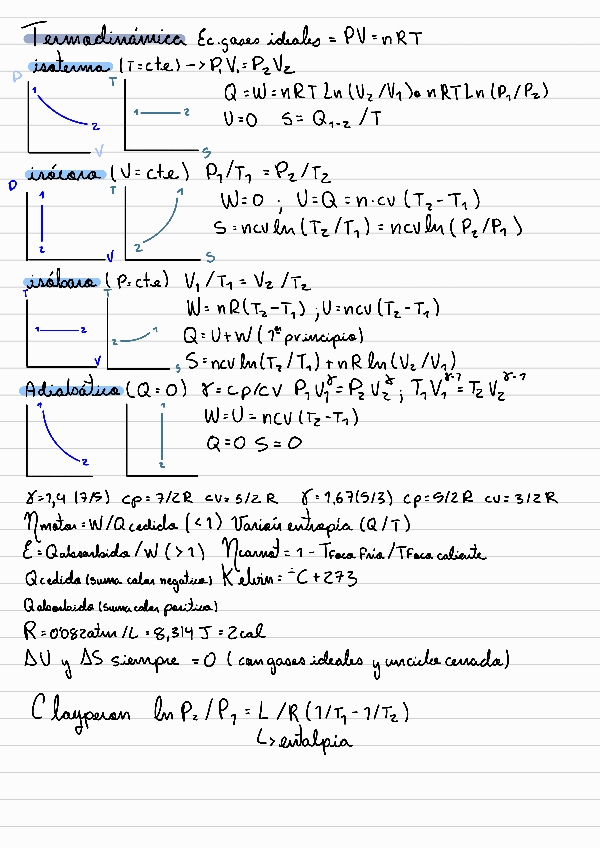 Termodinámica Ec. gases ideales = PV = nRT
isoterma (T=cte) -> P₁V₁ = P₂V₂
P T
1 2 1 2
V S
Q = W = nRT Ln (V₂/V₁) o nRT Ln (P₁/P₂)
U=0 S = Q₁₋₂ / T
isócora (V=cte) P₁/T₁ = P₂/T₂
P T
1 2 1 2
V S
W=0 ; U=Q=n·cv (T₂-T₁)
S = ncv ln (T₂/T₁) = ncv ln (P₂/P₁)
isóbara (P=cte) V₁/T₁ = V₂/T₂
T T
1 2 2 1
V S
W = nR(T₂-T₁) ; U = ncv (T₂-T₁)
Q = U+W (1er principio)
S = ncv ln (T₂/T₁) + nR ln (V₂/V₁)
Adiabática (Q=0) γ = cp/cv P₁V₁^γ = P₂V₂^γ ; T₁V₁^γ-1 = T₂V₂^γ-1
1 2 1 2
W = U = ncv (T₂-T₁)
Q=0 S=0
γ=1,4 (7/5) cp = 7/2 R cv = 5/2 R γ = 1,67(5/3) cp = 5/2 R cv = 3/2 R
η motor = W/Q cedida (<1) Variación entropía (Q/T)
ε = Q absorbida / W (>1) η carnot = 1 - T Foco fría / T Foco caliente
Q cedida (suma calor negativa) Kelvin = °C + 273
Q absorbida (suma calor positiva)
R = 0'082 atm / L = 8,314 J = 2 cal
ΔU y ΔS siempre = 0 (con gases ideales y un ciclo cerrado)
Clayperon ln P₂/P₁ = L/R (1/T₁ - 1/T₂)
L> entalpía